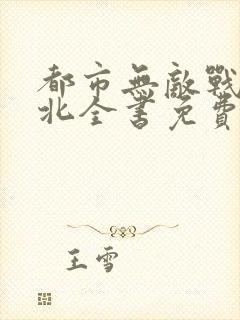 都市無敵戰
北全書免費
王雪